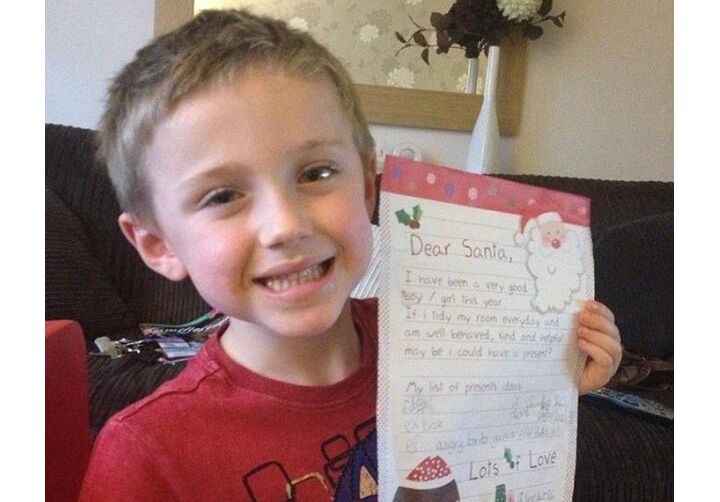 Dear Santa,
I have been a very good
boy / girl this year.
If i tidy my room everyday and
am well behaved, kind and helpful
may be i could have a present?
My list of presents ideas
box
angry birds
Lots of Love